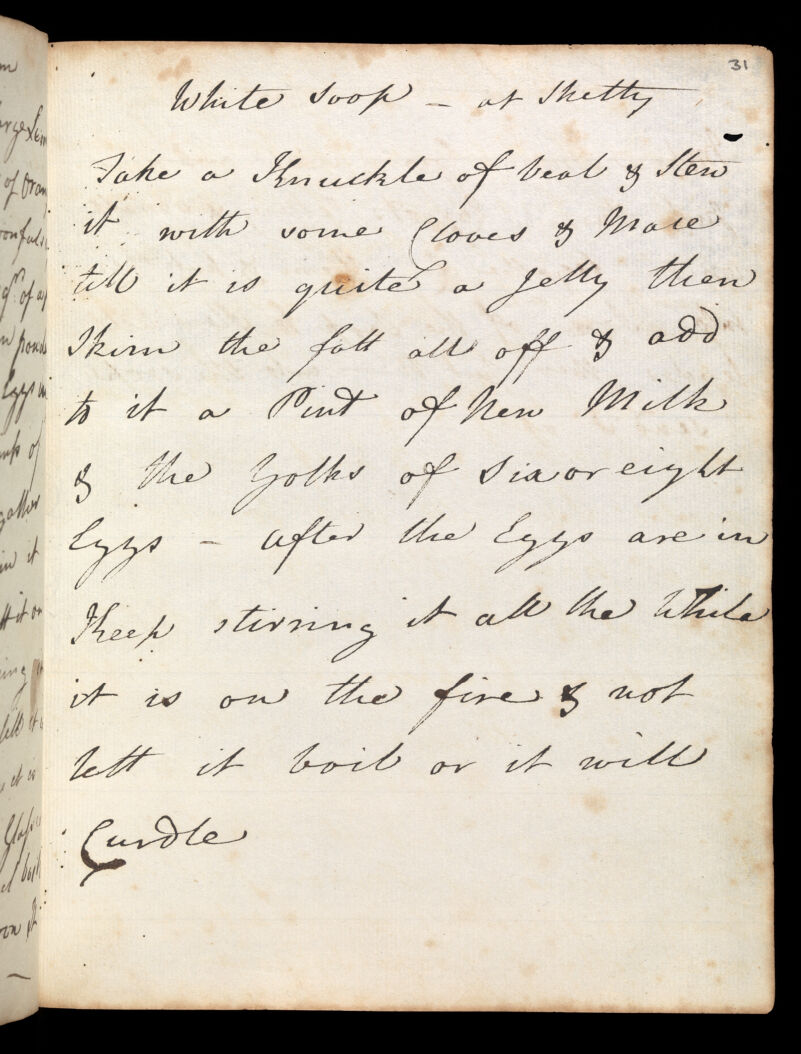 31
White Soop – at Sketty
Take a Knuckle of Veal & Stew
it with some Cloves & Mace
till it is quite a Jelly then
Skim the fatt all off & add
to it a Pint of New Milk
& the Yolks of Six or eight
Eggs – after the Eggs are in
Keep stirring it all the While
it is on the fire & not
lett it boil or it will
Curdle
of Oran
qr. of a
Eggs
in it